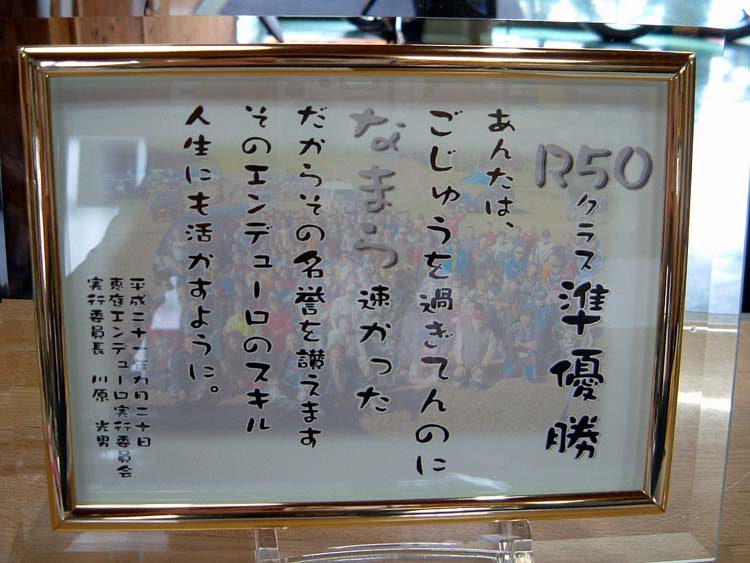 R50クラス準優勝
あんたは、
ごじゅうを過ぎてんのに
なまら速かった
だからその名誉を讃えます
そのエンデューロのスキル
人生にも活かすように。
平成二十一年九月二十日
恵庭エンデューロ実行委員会
実行委員長 川原 光男